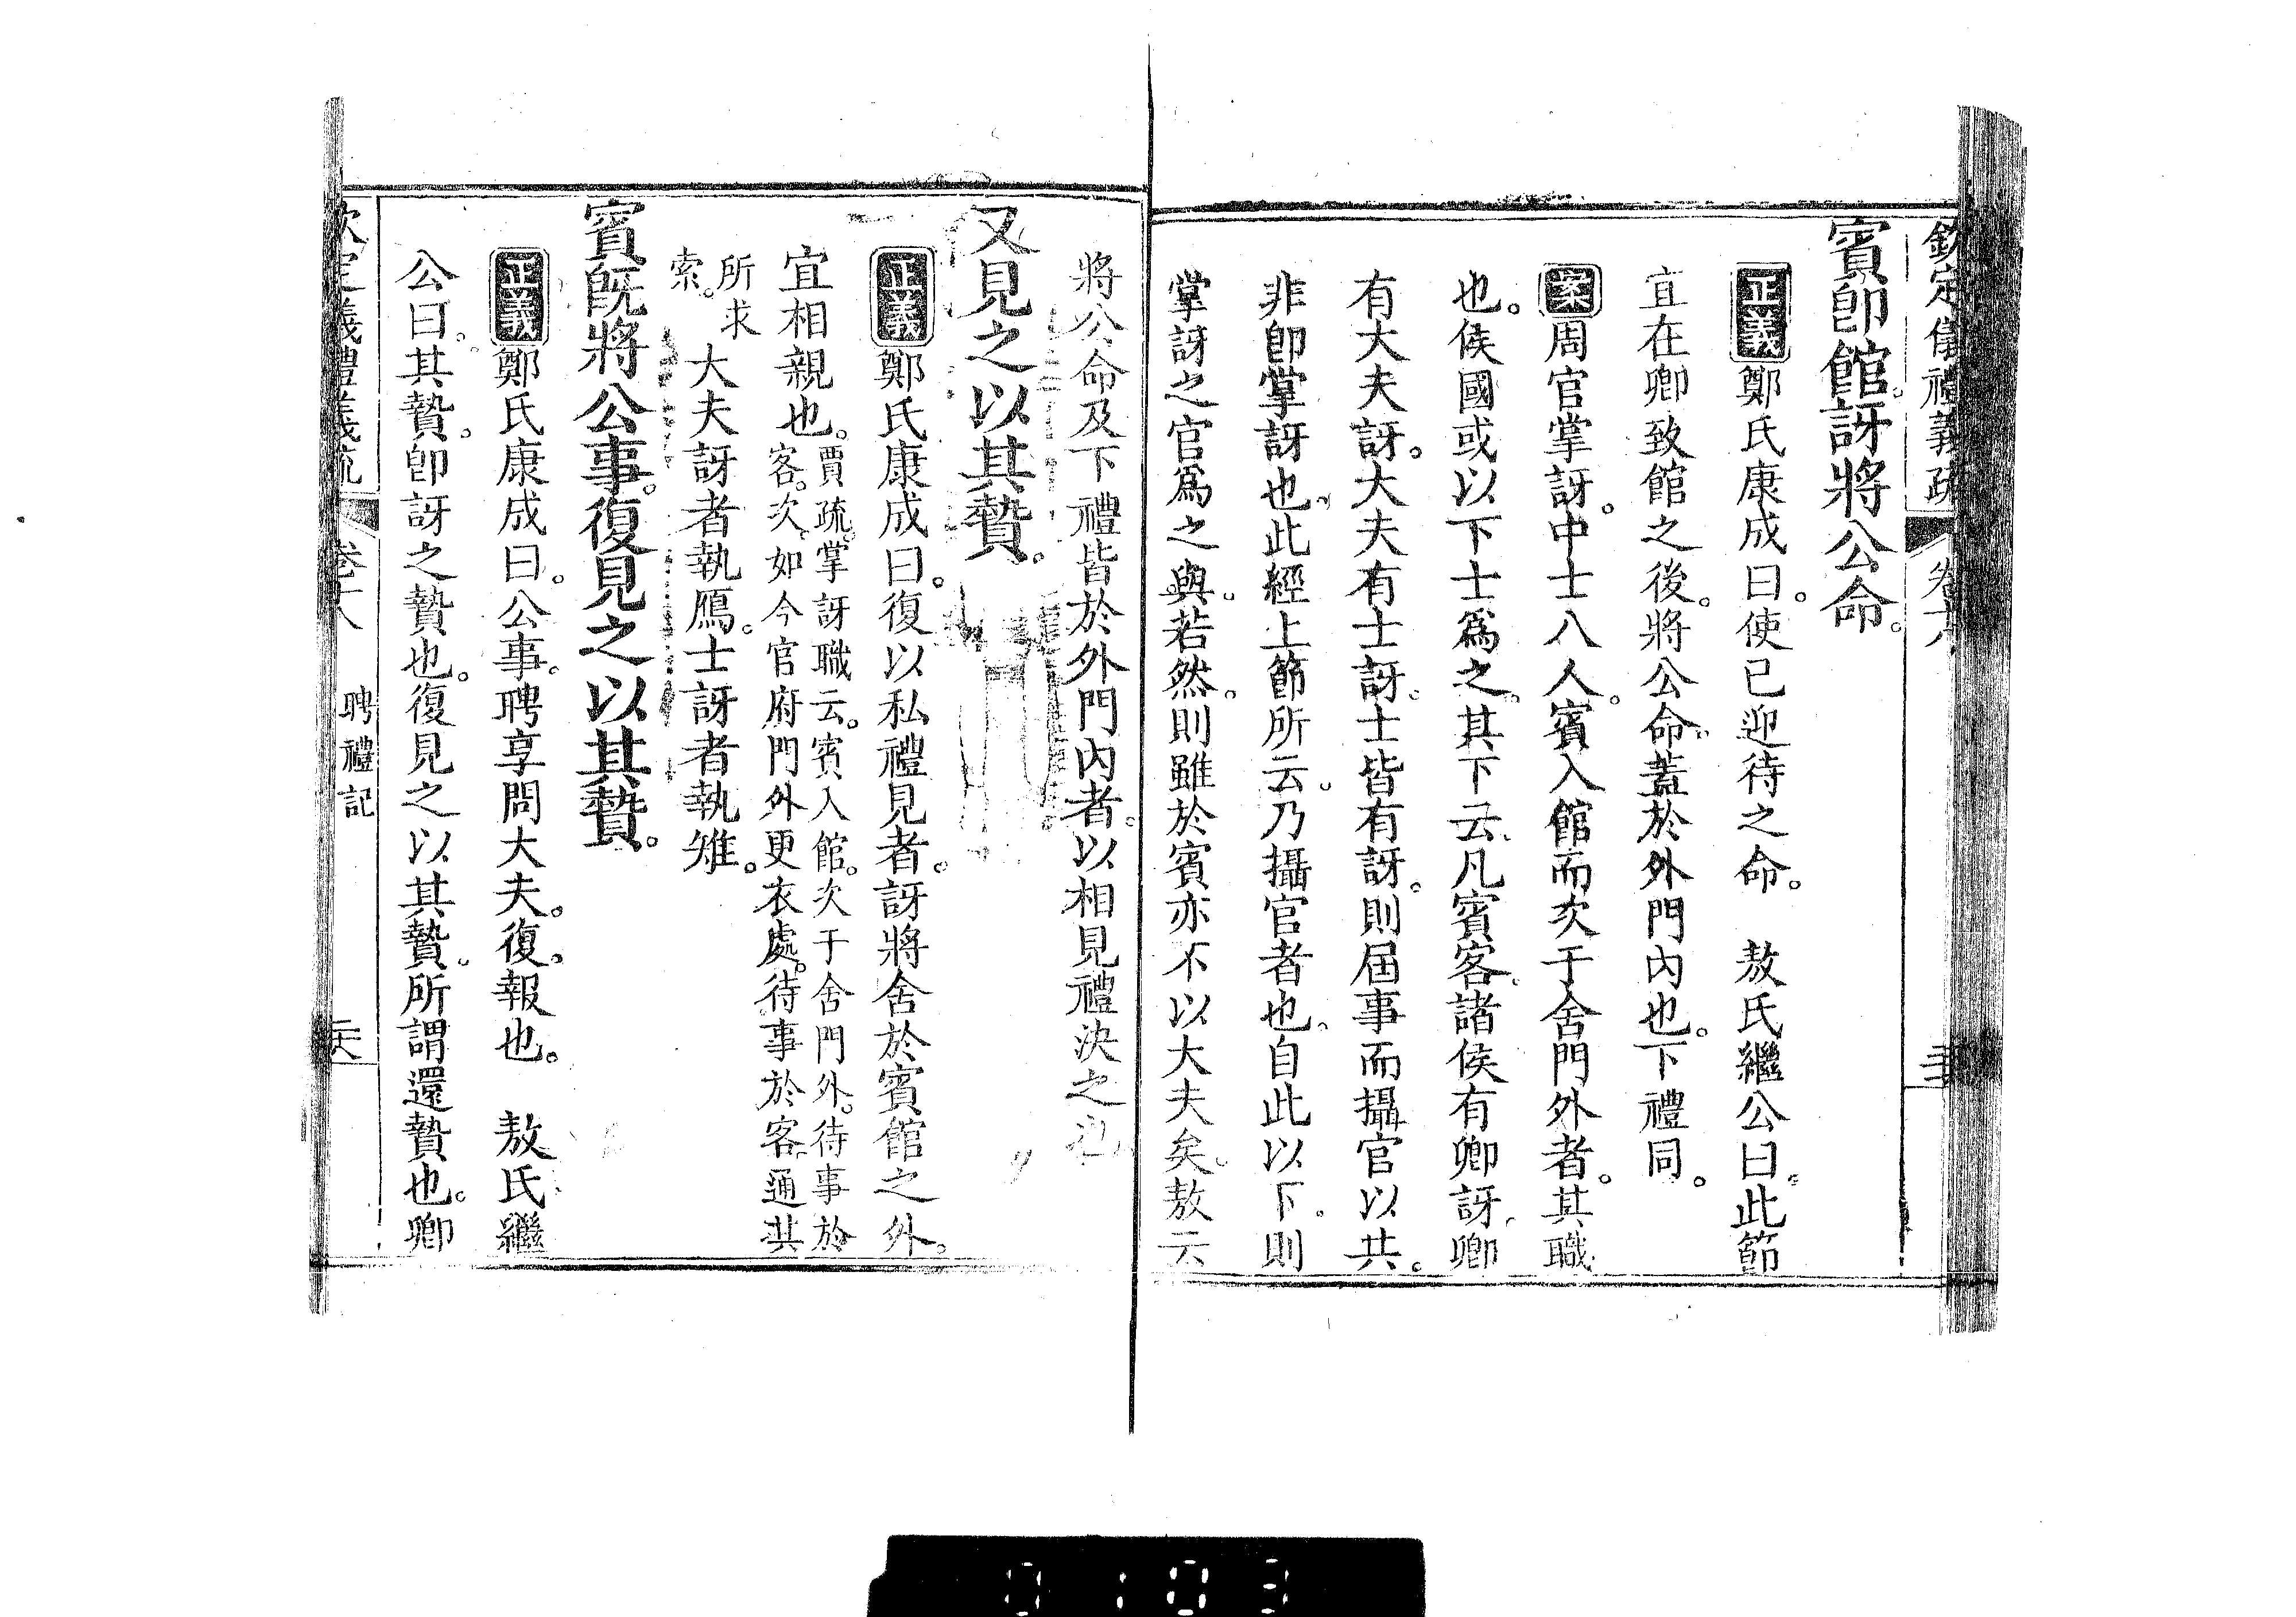 欽定儀禮義疏 卷十八
賓卽館。訝將公命。
正義鄭氏康成曰。使已迎待之命。 敖氏繼公曰。此節
宜在卿致館之後。將公命。蓋於外門內也。下禮同。
案周官掌訝。中士八人。賓入館而次于舍門外者。其職
也。侯國或以下士爲之。其下云。凡賓客。諸侯有卿訝。卿
有大夫訝。大夫有士訝。士皆有訝。則屆事而攝官以共。
非卽掌訝也。此經上節所云。乃攝官者也。自此以下。則
掌訝之官爲之與。若然。則雖於賓亦不以大夫矣。敖云
將公命及下禮皆於外門內者。以相見禮決之也
又見之以其贄。
正義鄭氏康成曰。復以私禮見者。訝將舍於賓館之外。
宜相親也。賈疏。掌訝職云。賓入館。次于舍門外。待事於
客。次。如今官府門外更衣處。待事於客。通其
所求
索。 大夫訝者執鴈。士訝者執雉。
賓旣將公事。復見之以其贄。
正義鄭氏康成曰。公事。聘享問大夫。復。報也。 敖氏繼
公曰。其贄。卽訝之贄也。復見之以其贄。所謂還贄也。卿
定義禮義疏 卷十八 聘禮記 二六
0103